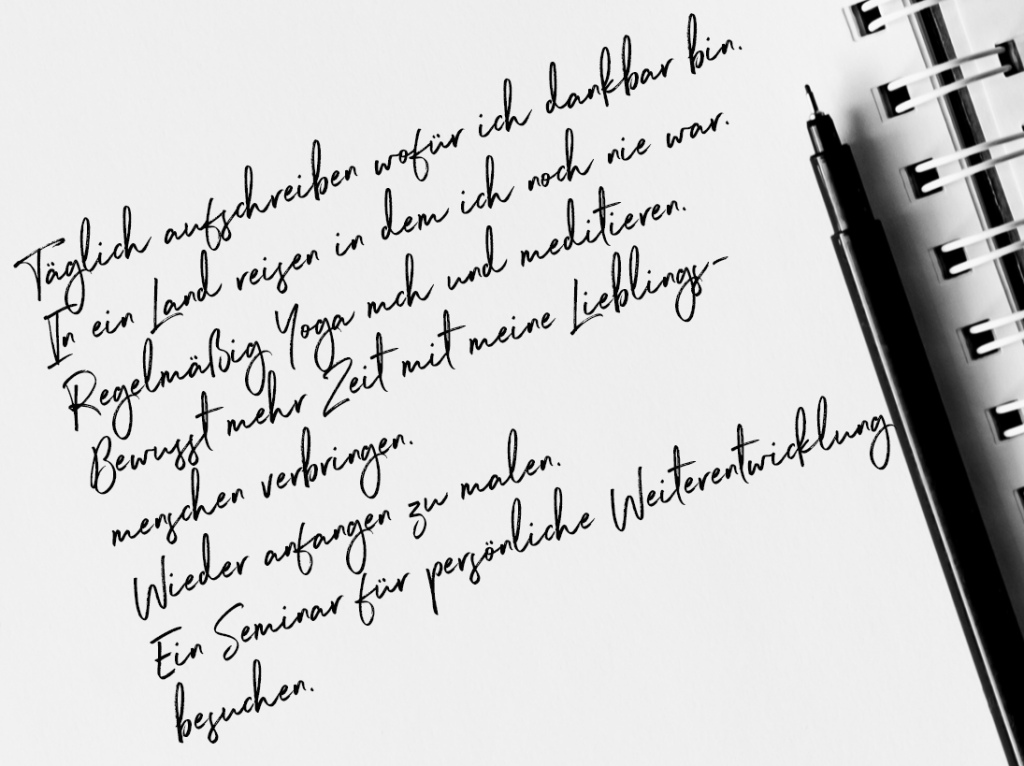 Täglich aufschreiben wofür ich dankbar bin.
In ein Land reisen in dem ich noch nie war.
Regelmäßig Yoga mch und meditieren.
Bewusst mehr Zeit mit meine Lieblings-
menschen verbringen.
Wieder anfangen zu malen.
Ein Seminar für persönliche Weiterentwicklung
besuchen.